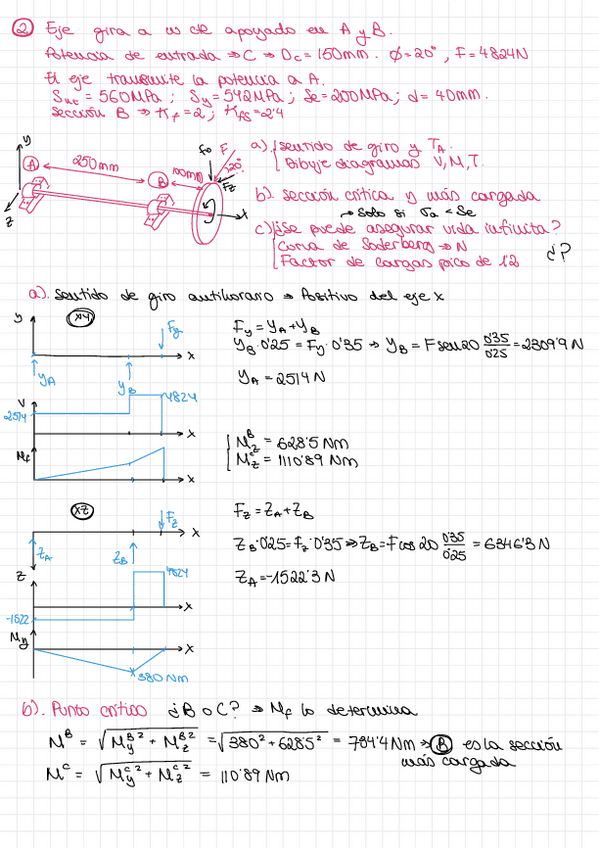 ② Eje gira a w cte apoyado en A y B.
Potencia de entrada ⇒ C ⇒ Dc = 150mm. Φ=20°, F = 4824N
El eje transmite la potencia a A.
Sut = 560MPa ; Sy = 542MPa ; Se = 200MPa ; d = 40mm.
sección B ⇒ Kf = 2 ; Kfs = 2'4
y
A
250mm
B
100mm
fo F
20°
Fz
x
z
a) sentido de giro y TA.
Dibuje diagramas V, M, T.
b). sección crítica y más cargada
↱ Solo si σa < Se
c) ¿Se puede asegurar vida infinita?
Curva de Soderberg ⇒ N
Factor de cargas pico de 1'2
¿?
a). Sentido de giro antihorario ⇒ Positivo del eje x
y
xy
Fy
x
YA
YB
Fy = YA + YB
YB · 0'25 = Fy · 0'35 ⇒ YB = F sen20 0'35/0'25 = 2309'9 N
YA = 2514 N
V
4824
2514
x
Mf
x
MzB = 628'5 Nm
MzC = 1110'89 Nm
xz
Fz
x
ZA
ZB
Fz = ZA + ZB
ZB · 0'25 = Fz · 0'35 ⇒ ZB = F cos 20 0'35/0'25 = 6346'3 N
ZA = -1522'3 N
Z
4824
x
-1522
My
x
380 Nm
b). Punto crítico ¿B o C? ⇒ Mf lo determina
MB = √(MyB2 + MzB2) = √(380² + 628'5²) = 734'4 Nm ⇒ B es la sección
más cargada
MC = √(MyC2 + MzC2) = 110'89 Nm